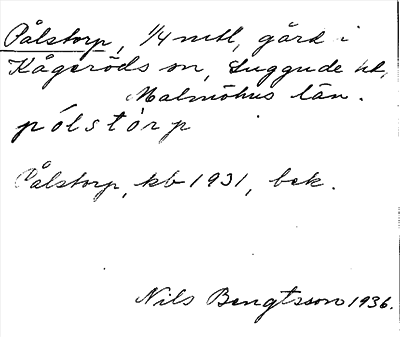 Pålstorp, 1/4 mtl, gård i
Kågeröds sn, Luggude hd,
Malmöhus län.
pólstòrp
Pålstorp, kb 1931, bek.
Nils Bengtsson 1936.